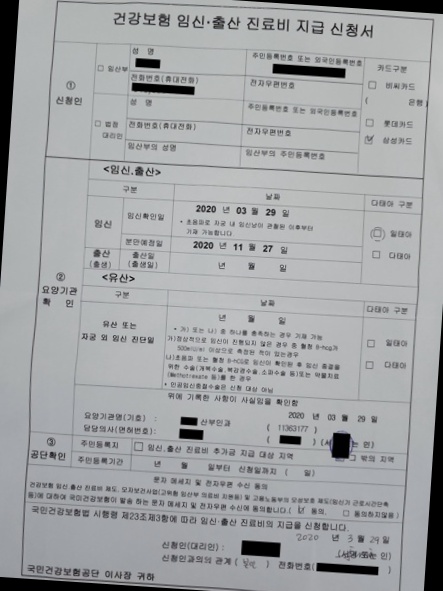 건강보험 임신·출산 진료비 지급 신청서
① 신청인
□ 임산부
성 명
주민등록번호 또는 외국인등록번호
카드구분
전화번호(휴대전화)
전자우편번호
□ 비씨카드
( 은행)
□ 법정대리인
성 명
주민등록번호 또는 외국인등록번호
□ 롯데카드
전화번호(휴대전화)
전자우편번호
☑ 삼성카드
임산부의 성명
임산부의 주민등록번호
② 요양기관 확 인
<임신.출산>
구분
날짜
다태아 구분
임신
임신확인일
2020 년 03 월 29 일
* 초음파로 자궁 내 임신낭이 관찰된 이후부터 기재 가능합니다
□ 일태아
분만예정일
2020 년 11 월 27 일
□ 다태아
출산 (출생)
출산일 (출생일)
년 월 일
<유산>
구분
날짜
다태아 구분
유산 또는 자궁 외 임신 진단일
년 월 일
* 가) 또는 나) 중 하나를 충족하는 경우 기재 가능
가)정상적으로 임신이 진행되지 않은 경우 중 혈청 B-hcg가
500mIU/ml 이상으로 측정된 적이 있는경우
나)초음파 또는 혈청 B-HCG로 임신이 확인된 후 임신 종결을
위한 수술(개복수술, 복강경수술, 소파수술 등)또는 약물치료
(Methotrexate 등)를 한 경우
* 인공임신중절수술은 신청 대상 아님
□ 일태아
□ 다태아
위에 기록한 사항이 사실임을 확인함
2020 년 03 월 29 일
요양기관명(기호) : 산부인과 ( 11363177 )
담당의사(면허번호): ( ) 인)
③ 공단확인
주민등록지
□ 임신.출산 진료비 추가금 지급 대상 지역
□ 그 밖의 지역
주민등록기간
년 월 일부터 신청일까지 ( 일)
문자 메세지 및 전자우편 수신 동의
건강보험 임신.출산 진료비 제도, 모자보건사업(고위험 임산부 의료비 지원등) 및 고용노동부의 모성보호 제도(임신기 근로시간단축
등)에 대하여 국민건강보험이 발송 하는 문자 메세지 및 전자우편 수신에 동의합니다.( ☑ 동의, □ 동의하지않음 )
국민건강보험법 시행령 제23조제3항에 따라 임신·출산 진료비의 지급을 신청합니다.
2020 년 3 월 29 일
신청인(대리인) : (서명 또는 인)
신청인과의의 관계 ( ) 전화번호(
국민건강보험공단 이사장 귀하